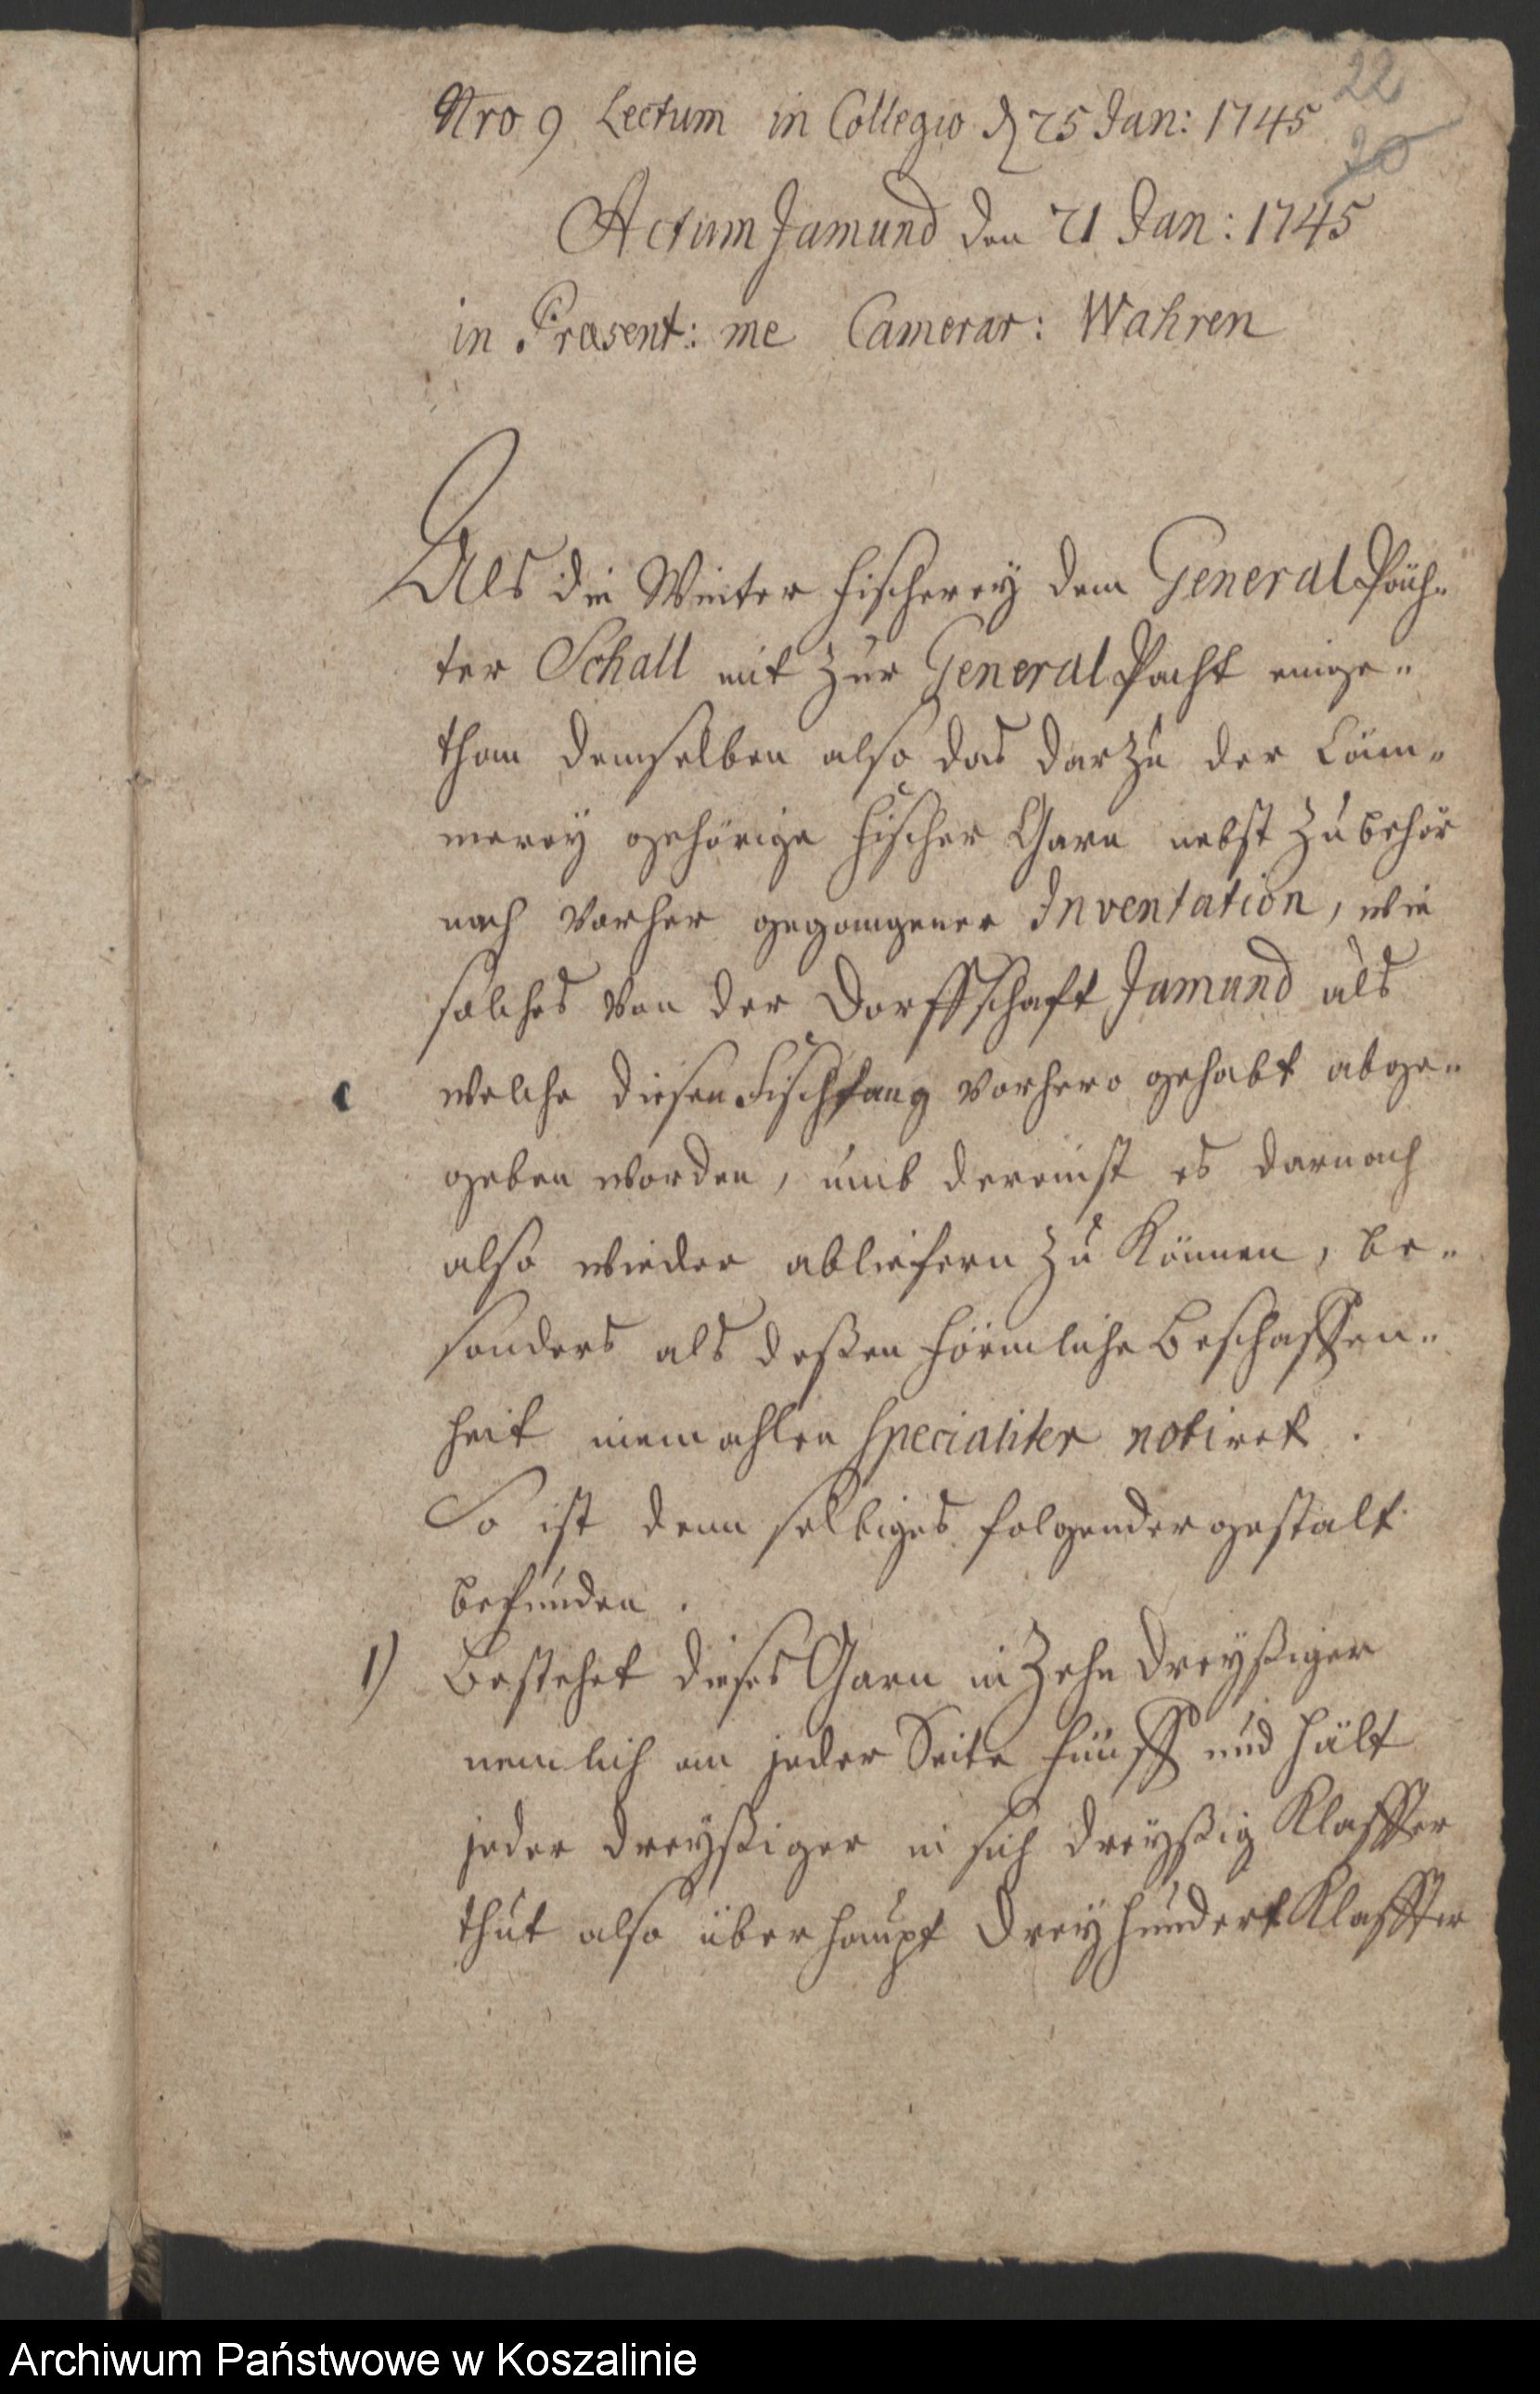 22
Nro 9 Lectum in Collegio d 25 Jan: 1745
20
Actum Jamund den 21 Jan: 1745
in Præsent: me Camerar: Wahren
Als die Winter Fischerey dem General Päch-
ter Schall mit zur General Pacht einge-
than demselben also das darzu der Cäm-
merey gehörige Fischer Garn nebst Zubehör
nach vorher gegangener Inventation, wie
solches von der Dorffschaft Jamund als
welche diesen Fischfang vorhero gehabt abge-
geben worden, umb dereinst es darnach
also wieder abliefern zu können, be-
sonders als deßen förmliche Beschaffen-
heit niemahlen specialiter notiret.
So ist denn selbiges folgender gestalt
befunden.
1) Bestehet dieses Garn in Zehn Dreyßiger
nemlich an jeder Seite fünff und hält
jeder Dreyßiger in sich dreyßig Klaffter
thut also überhaupt Dreyhundert Klaffter
Archiwum Państwowe w Koszalinie